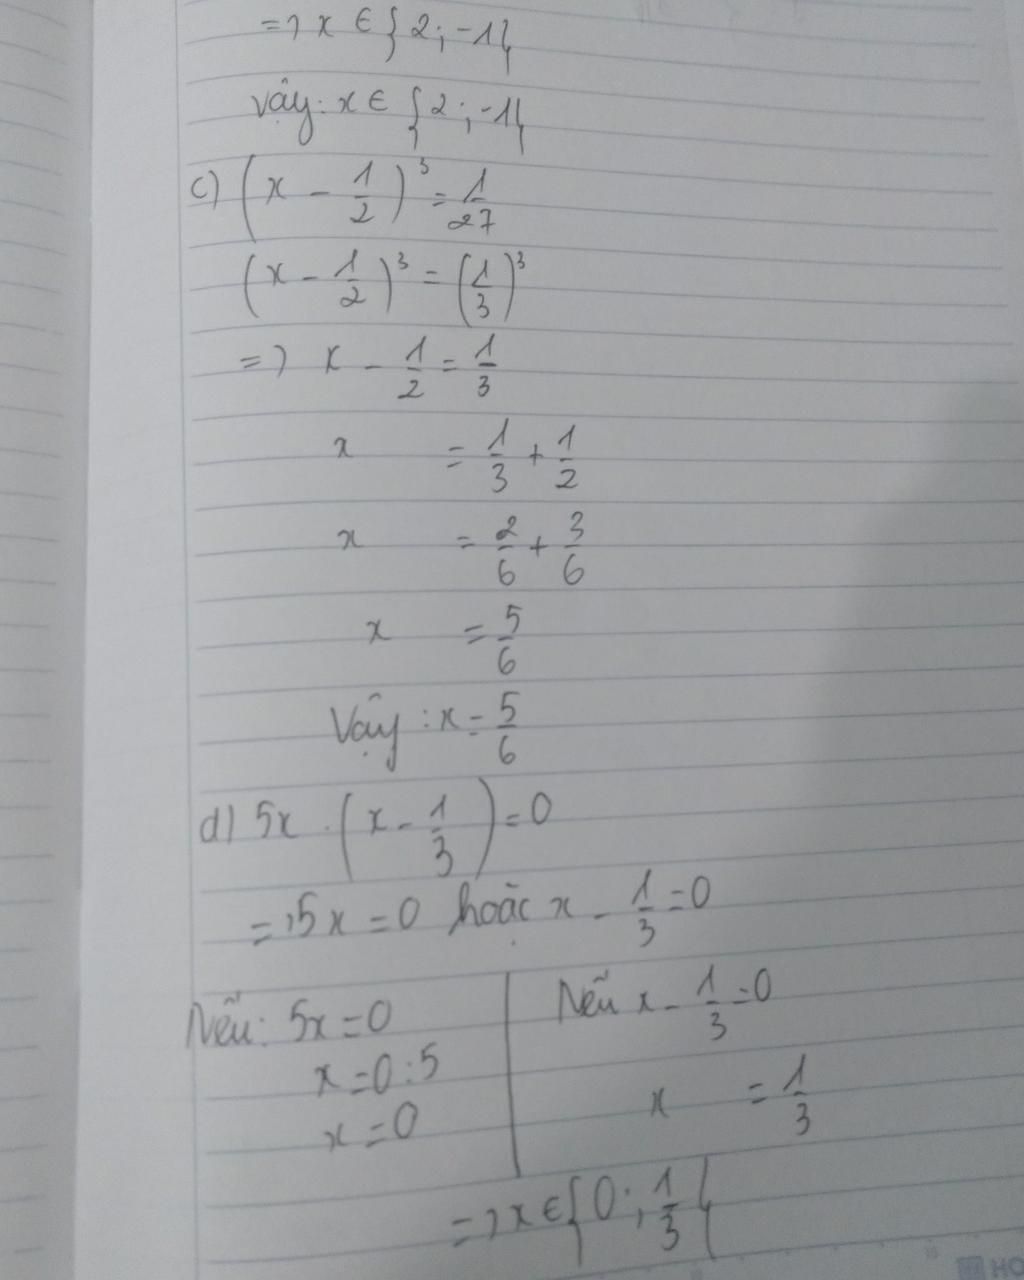 => x ∈ {2; -1}
Vậy: x ∈ {2; -1}
c) (x - 1/2)³ = 1/27
(x - 1/2)³ = (1/3)³
=> x - 1/2 = 1/3
x = 1/3 + 1/2
x = 2/6 + 3/6
x = 5/6
Vậy: x = 5/6
d) 5x . (x - 1/3) = 0
=> 5x = 0 hoặc x - 1/3 = 0
Nếu: 5x = 0
x = 0 : 5
x = 0
Nếu x - 1/3 = 0
x = 1/3
=> x ∈ {0; 1/3}